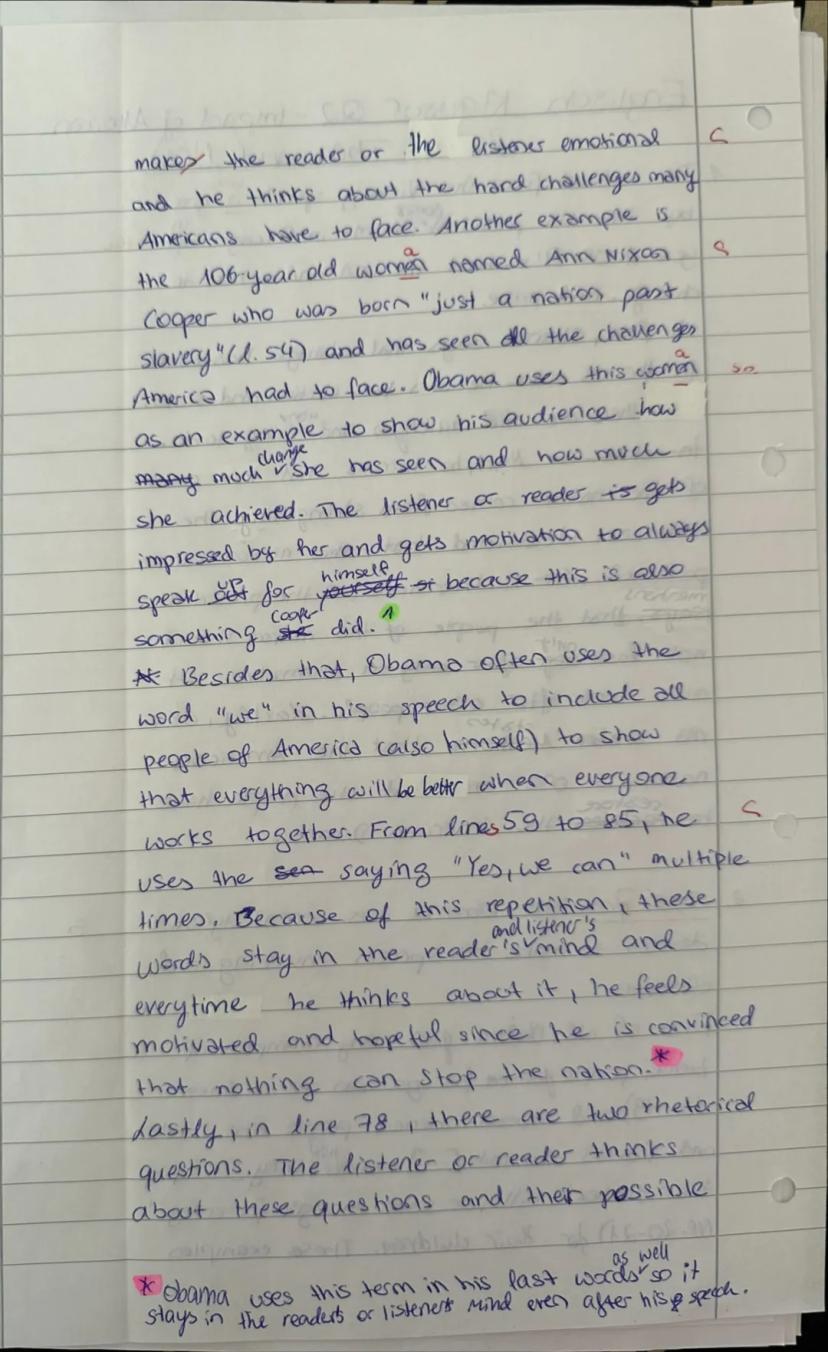 makes the reader or the listener emotional
and he thinks about the hard challenges many
Americans have to face. Another example is
the 106-year old women named Ann Nixon
Cooper who was born "just a nation past
slavery" (l. 54) and has seen all the challenges
America had to face. Obama uses this women
as an example to show his audience how
many much change she has seen and how much
she achieved. The listener or reader is gets
impressed by her and gets motivation to always
speak out up for yourself himself because this is also
something she Cooper did. 1
Besides that, Obama often uses the
word "we" in his speech to include all
people of America (also himself) to show
that everything will be better when everyone
works together. From lines 59 to 85, he
uses the sen saying "Yes, we can" multiple
times. Because of this repetition, these
words stay in the reader's and listener's mind and
everytime he thinks about it, he feels
motivated and hopeful since he is convinced
that nothing can stop the nation.*
Lastly, in line 78, there are two rhetorical
questions. The listener or reader thinks
about these questions and their possible
* Obama uses this term in his last words as well so it
stays in the readers or listeners mind even after his speech.